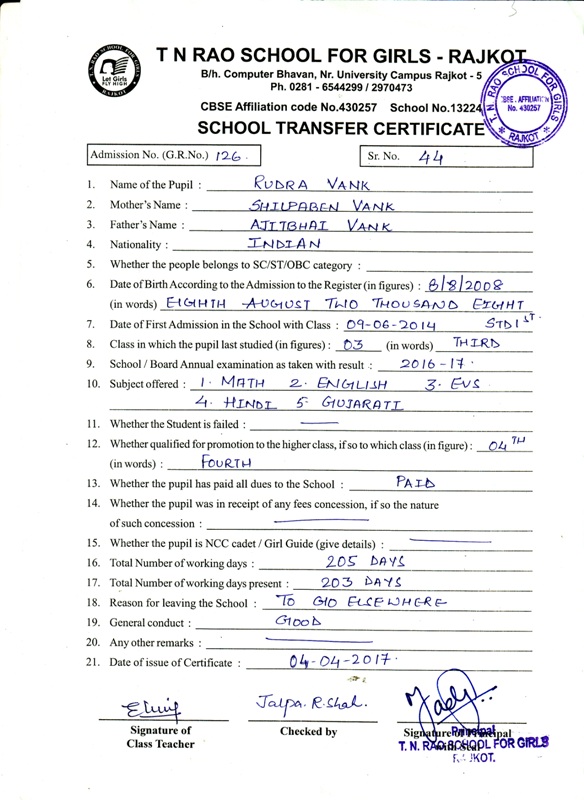 T N RAO SCHOOL FOR GIRLS
Let Girls
FLY HIGH
RAJKOT
T N RAO SCHOOL FOR GIRLS - RAJKOT
B/h. Computer Bhavan, Nr. University Campus Rajkot - 5
Ph. 0281 - 6544299 / 2970473
CBSE Affiliation code No.430257 School No.13224
T. N. RAO SCHOOL FOR GIRLS
CBSE. AFFILIATION
No. 430257
* RAJKOT *
SCHOOL TRANSFER CERTIFICATE
Admission No. (G.R.No.) 126 Sr. No. 44
1. Name of the Pupil : RUDRA VANK
2. Mother's Name : SHILPABEN VANK
3. Father's Name : AJITBHAI VANK
4. Nationality : INDIAN
5. Whether the people belongs to SC/ST/OBC category :
6. Date of Birth According to the Admission to the Register (in figures) : 8/8/2008
(in words) EIGHTH AUGUST TWO THOUSAND EIGHT
7. Date of First Admission in the School with Class : 09-06-2014 STD 1ST
8. Class in which the pupil last studied (in figures) : 03 (in words) THIRD
9. School / Board Annual examination as taken with result : 2016-17.
10. Subject offered : 1. MATH 2. ENGLISH 3. EVS
4. HINDI 5. GUJARATI
11. Whether the Student is failed : —
12. Whether qualified for promotion to the higher class, if so to which class (in figure) : 04TH
(in words) : FOURTH
13. Whether the pupil has paid all dues to the School : PAID
14. Whether the pupil was in receipt of any fees concession, if so the nature
of such concession : —
15. Whether the pupil is NCC cadet / Girl Guide (give details) : —
16. Total Number of working days : 205 DAYS
17. Total Number of working days present : 203 DAYS
18. Reason for leaving the School : TO GO ELSEWHERE
19. General conduct : GOOD
20. Any other remarks : —
21. Date of issue of Certificate : 04-04-2017.
Jalpa. R. Shah.
Signature of Checked by Signature of Principal
Class Teacher with Seal
Principal
T. N. RAO SCHOOL FOR GIRLS
RAJKOT.